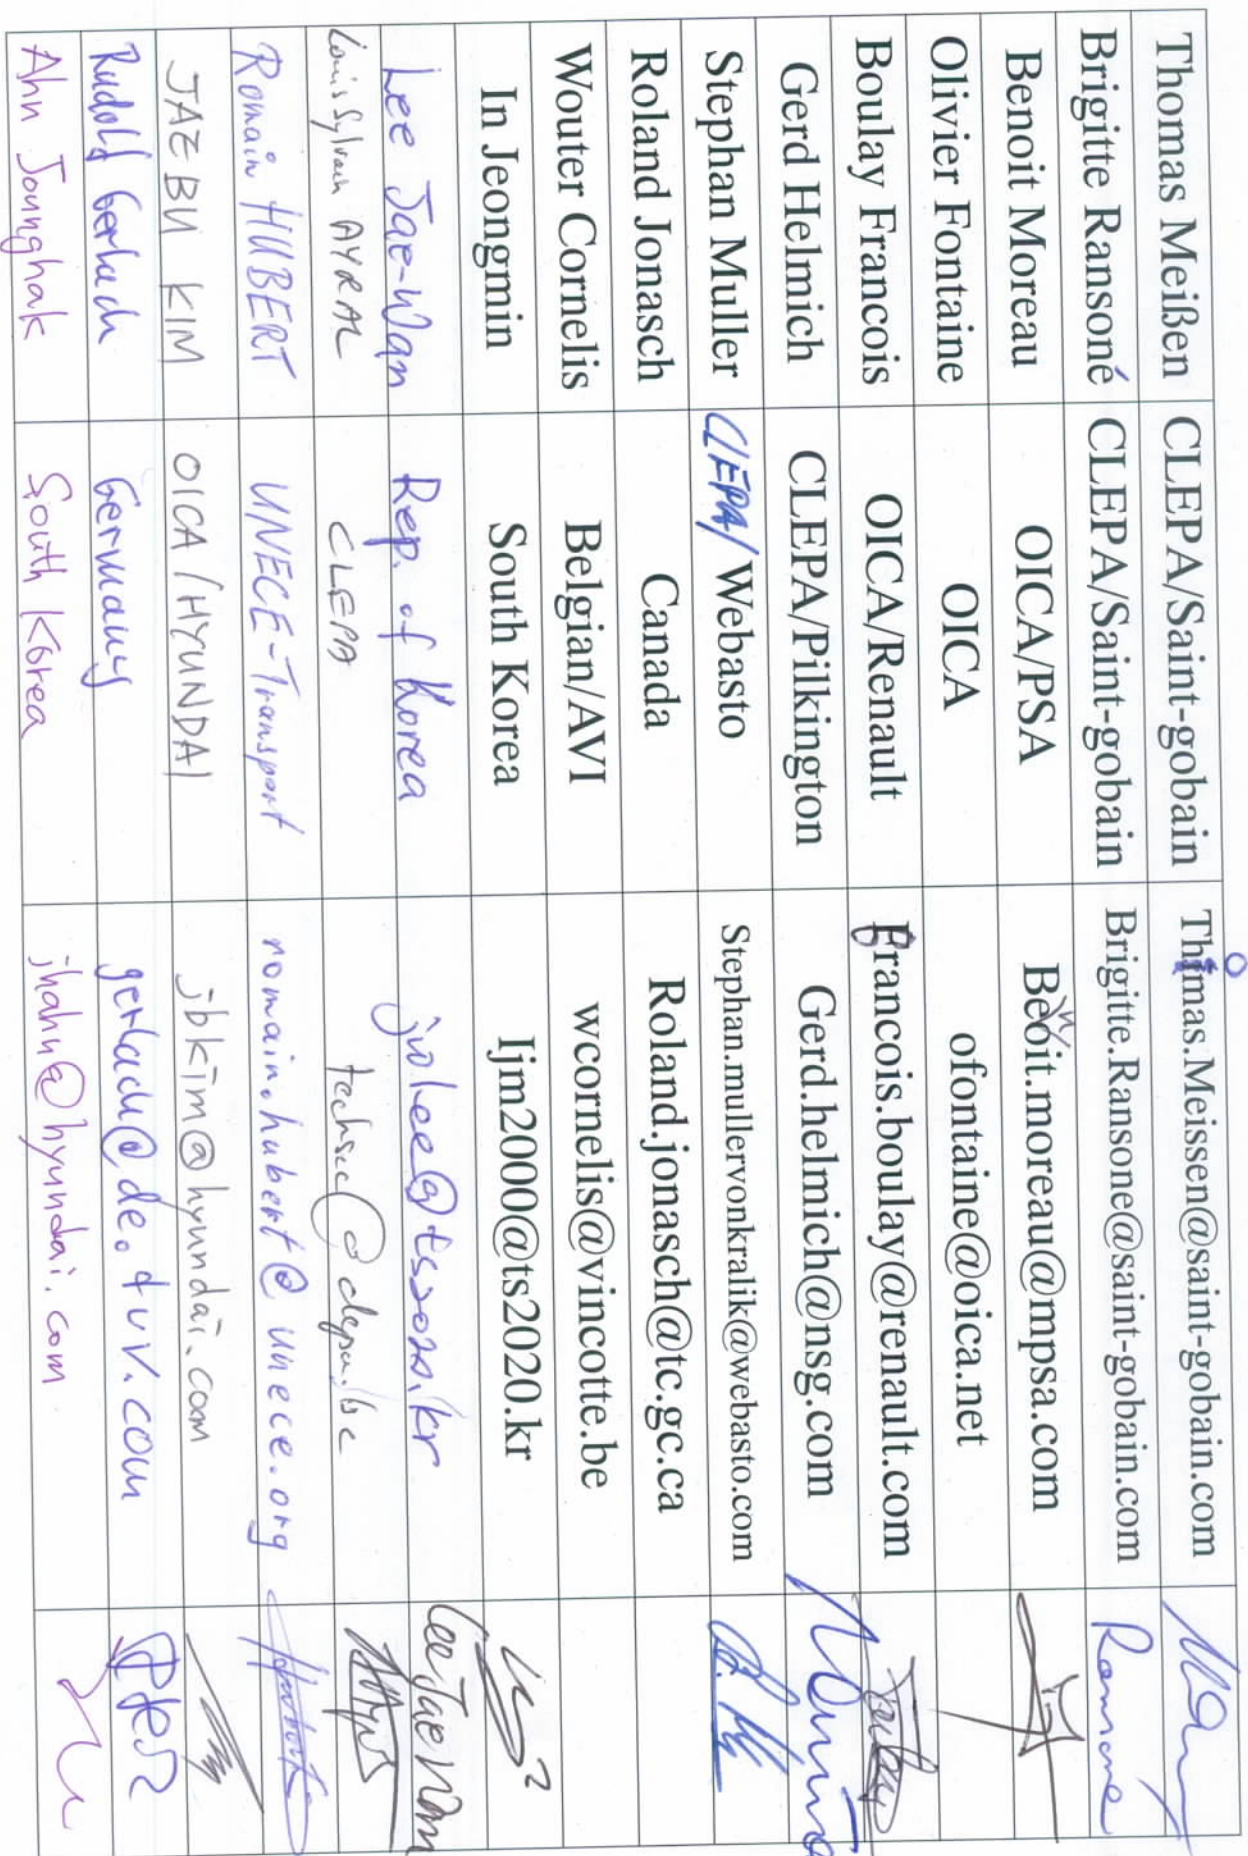 Thomas Meißen CLEPA/Saint-gobain Thimas.Meissen@saint-gobain.com
o
Brigitte Ransoné CLEPA/Saint-gobain Brigitte.Ransone@saint-gobain.com Ransone
Benoit Moreau OICA/PSA Beoit.moreau@mpsa.com
n
Olivier Fontaine OICA ofontaine@oica.net
Boulay Francois OICA/Renault Francois.boulay@renault.com
Gerd Helmich CLEPA/Pilkington Gerd.helmich@nsg.com
Stephan Muller CLEPA/ Webasto Stephan.mullervonkralik@webasto.com
Roland Jonasch Canada Roland.jonasch@tc.gc.ca
Wouter Cornelis Belgian/AVI wcornelis@vincotte.be
In Jeongmin South Korea Ijm2000@ts2020.kr
Lee Jae-Wan Rep. of Korea jwlee@ts2020.kr Lee Jae Wan
Louis Sylvain AYRAL CLEPA techsec@clepa.be
Romain HUBERT UNECE-Transport romain.hubert@unece.org
JAE BU KIM OICA/HYUNDAI jbkim@hyundai.com
Rudolf Gerlach Germany gerlach@de.tuv.com
Ahn Jounghak South Korea jhahn@hyundai.com